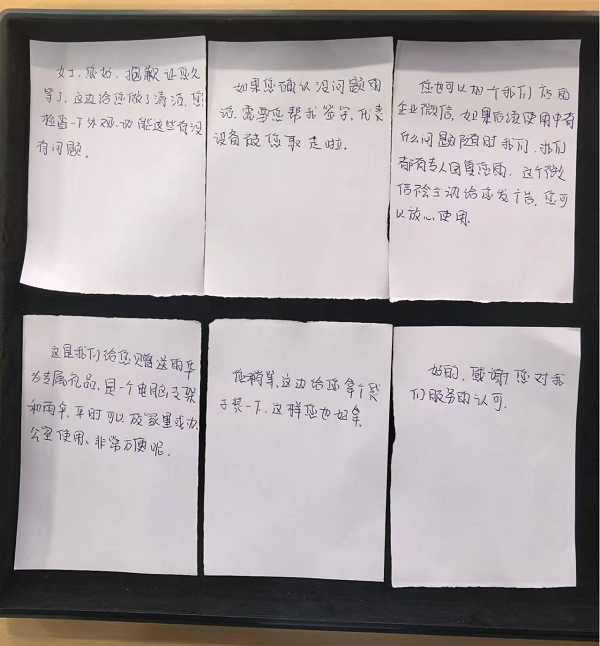 女士,您好,抱歉让您久
等了,这边给您做了清洁,您
检查一下外观,功能这些有没
有问题。
如果您确认没问题的
话,需要您帮我签字,代表
设备被您取走啦.
您也可以加一个我们店面
企业微信,如果后续使用中有
什么问题随时我们,我们
都有专人回复您的.这个微
信不会主动给您发广告,您可
以放心使用.
这是我们给您赠送的华
为专属礼品,是一个电脑支架
和雨伞,平时可以放家里或办
公室使用、非常方便呢.
您稍等,这边给您拿个袋
子装一下,这样您也好拿.
好的,感谢您对我
们服务的认可.